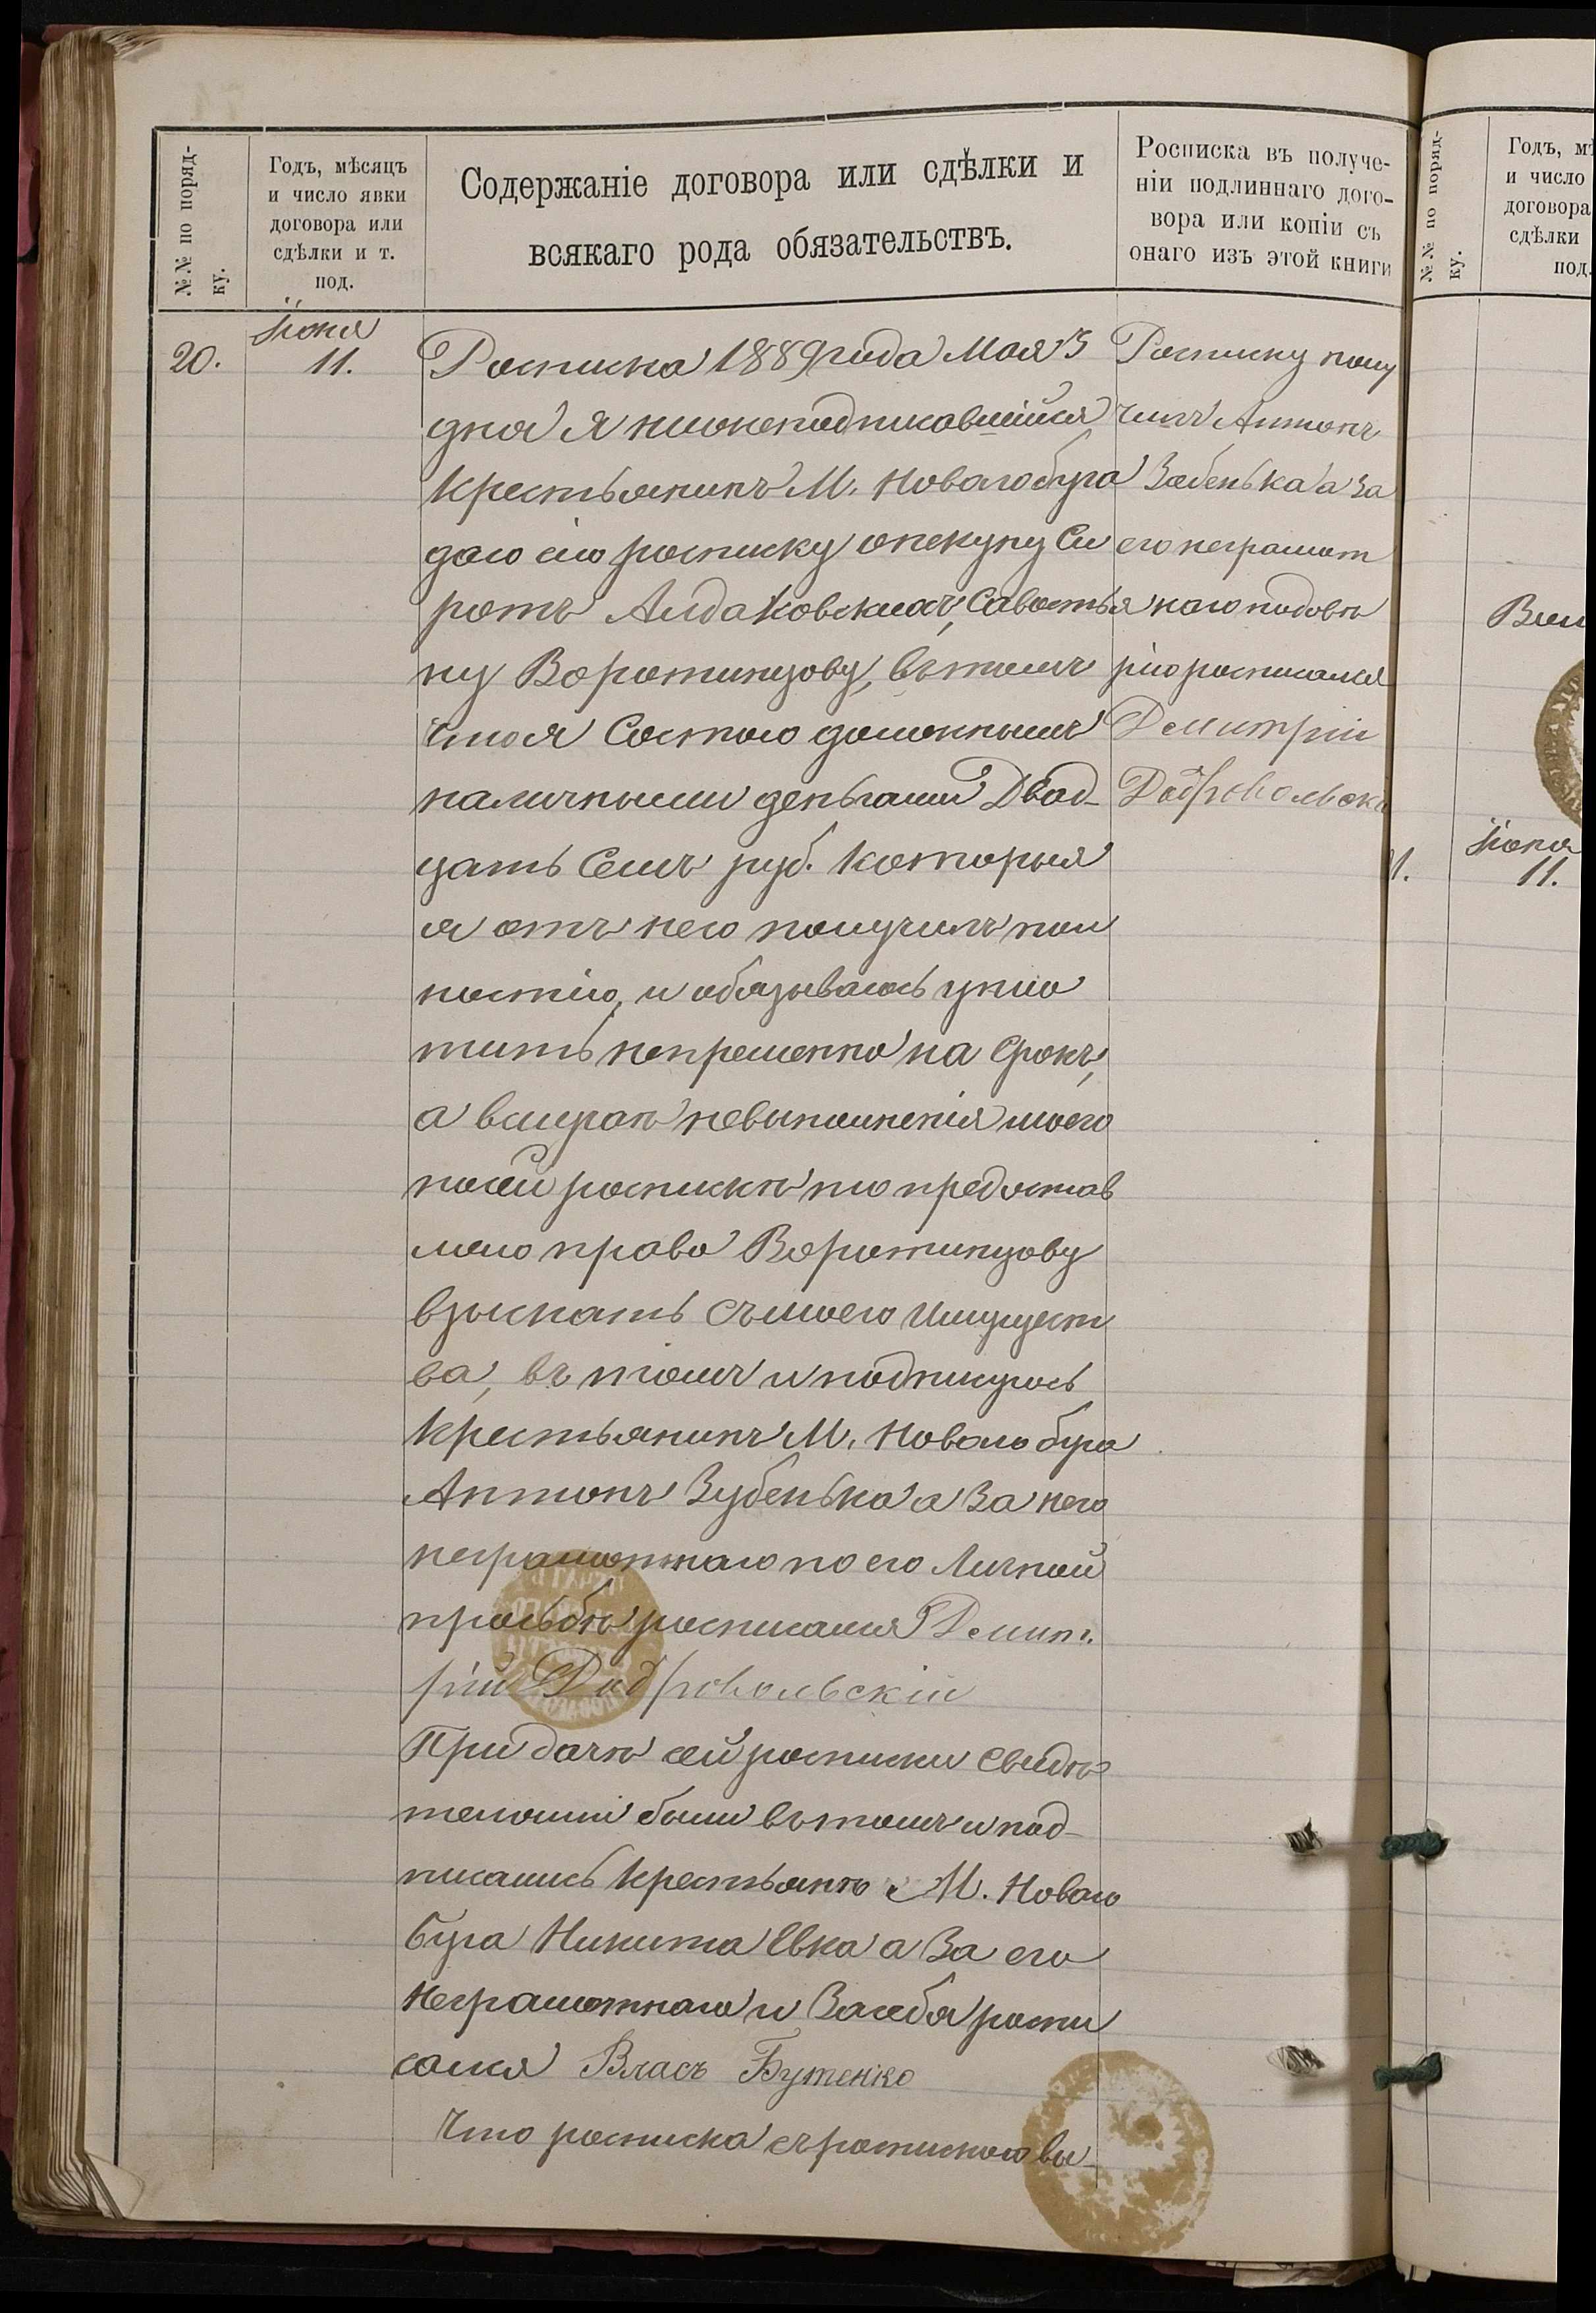 №№ по поряд-
ку.
Годъ, мѣсяцъ
и число явки
договора или
сдѣлки и т.
под.
Содержаніе договора или сдѣлки и
всякаго рода обязательствъ.
Росписка въ получе-
ніи подлиннаго дого-
вора или копіи съ
онаго изъ этой книги
20.
Іюня
11.
Росписка 1889 года Мая 3
дня я нижеподписавшійся
крестьянинъ М. Новагобуга
даю сію росписку опекуну Си
ротъ Алдаковскихъ, Савостья
ну Воротинцову, вътомъ
чтоя Состою должнымъ
наличными деньгами Двад-
цать Семъ руб. которыя
я отъ него получилъ пол
ностію, и обязываюсь упло
тить непременно на Срокъ,
а вслучаѣ невыполненія моего
посей роспискѣ то предостав
ляю право Воротинцову
взыскать съмоего Имущест
ва, въ томъ и подпишусь
Крестьянинъ М. Новаго буга
Антонъ Зубенька а За него
неграмотнаго по его Личной
просьбѣ росписался Демит
рій Добровольскій
При дачѣ сей росписки Свидѣ
телями были вътомъ и под-
писались Крестьяне М. Новаго
буга Никита Евка а За его
Неграмотнаго и Засебя роспи
сался Власъ Бутенко
Что росписка съ роспискою вы-
Росписку полу
чилъ Антонъ
Забенька а за
его неграмот
наго подовѣ
рію росписался
Демитрій
Добровольскі
№№ по поряд-
ку.
Годъ, мѣ
и число
договора
сдѣлки
под.
Іюня
11.